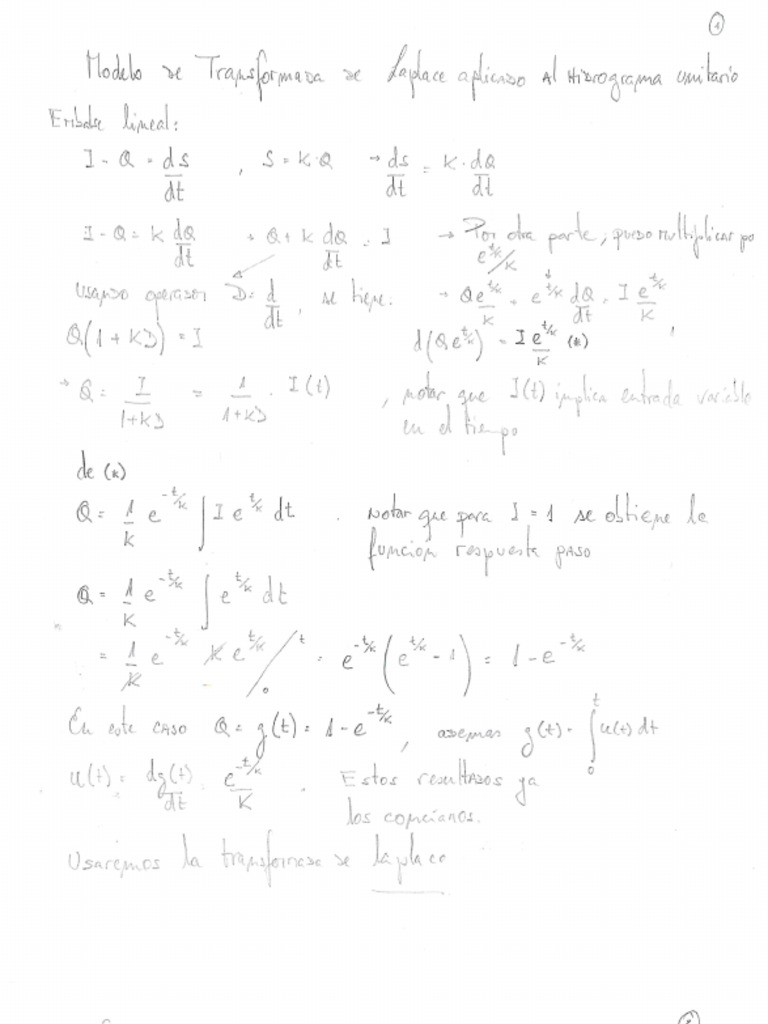 1
Modelo de Transformada de Laplace aplicado Al Hidrograma unitario
Embalse lineal:
I - Q = ds/dt , S = K·Q → ds/dt = K·dQ/dt
I - Q = K dQ/dt → Q + K dQ/dt = I → Por otra parte, puedo multiplicar po e^{t/k}/K
Usando operador D = d/dt, se tiene: → Q e^{t/k}/K + e^{t/k} dQ/dt = I e^{t/k}/K ,
Q(1 + KD) = I d(Q e^{t/k}) = I e^{t/k}/K (*)
→ Q = I/(1+KD) = 1/(1+KD) · I(t) , notar que I(t) implica entrada variable
en el tiempo
de (*)
Q = 1/K e^{-t/k} ∫ I e^{t/k} dt . Notar que para I = 1 se obtiene la
función respuesta paso
Q = 1/K e^{-t/k} ∫ e^{t/k} dt
= 1/K e^{-t/k} K e^{t/k} /₀^t = e^{-t/k} (e^{t/k} - 1) = 1 - e^{-t/k}
En este caso Q = g(t) = 1 - e^{-t/k} , ademas g(t) = ∫₀^t u(t) dt
u(t) = dg(t)/dt = e^{-t/k}/K . Estos resultados ya
los conocíamos.
Usaremos la transformada de laplace